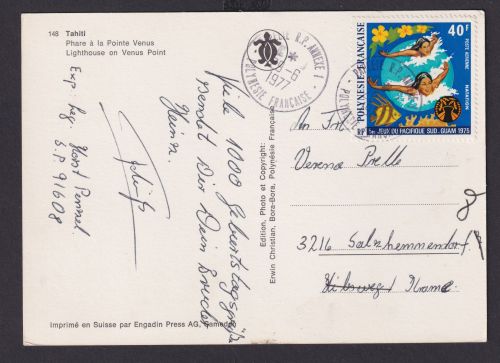 148 Tahiti
Phare à la Pointe Vénus
Lighthouse on Venus Point
Exp. Leg. Horst Pennel
S.P. 91608
Viele 1000 Geburtstagsgrüße
sendet Dir Dein Bruder
Heinz.
Edition, Photo et Copyright:
Erwin Christian, Bora-Bora, Polynésie Française
Imprimé en Suisse par Engadin Press AG, Samedan
R.P. ANNEXE 1
-6
1977
POLYNESIE FRANÇAISE
40F
POSTE AERIENNE
NATATION
POLYNÉSIE FRANÇAISE
RF 5es JEUX DU PACIFIQUE SUD. GUAM 1975
An Frl.
Verena
3216 Salzhemmendorf